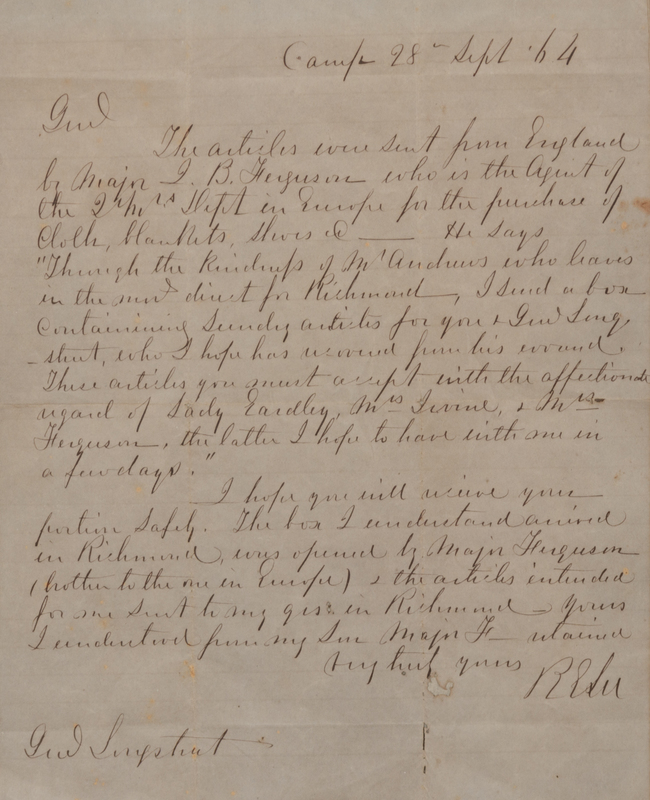 Camp 28th Sept '64
Genl
The articles were sent from England
by Major J. B. Ferguson who is the Agent of
the Qr Mrs Dept in Europe for the purchase of
Cloth, blankets, shoes &c — He says
"Through the kindness of Mr Andrews who leaves
in the mornd direct for Richmond, I send a box
containing sundry articles for you & Genl Long
-street, who I hope has recovered from his wound.
These articles you must accept with the affectionate
regard of Lady Eardley, Mrs Irvine, & Mrs
Ferguson, the latter I hope to have with me in
a few days."
I hope you will receive your
portion safely. The box I understand arrived
in Richmond, was opened by Major Ferguson
(brother to the one in Europe) & the articles intended
for me sent to my qrs: in Richmond — Yours
I understood from my Son Major F— retained
Very truly yours
R E Lee
Genl Longstreet